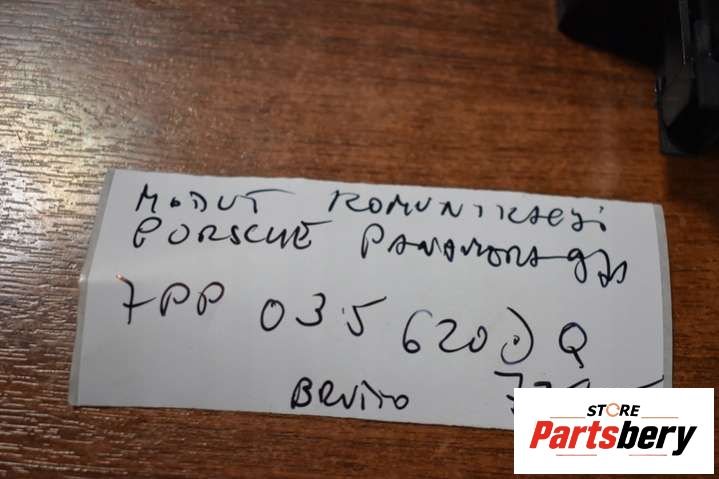 MODUŁ KOMUNIKACJI
PORSCHE PANAMERA 971
7PP 035 620 Q
BRUTTO
STORE
Partsbery